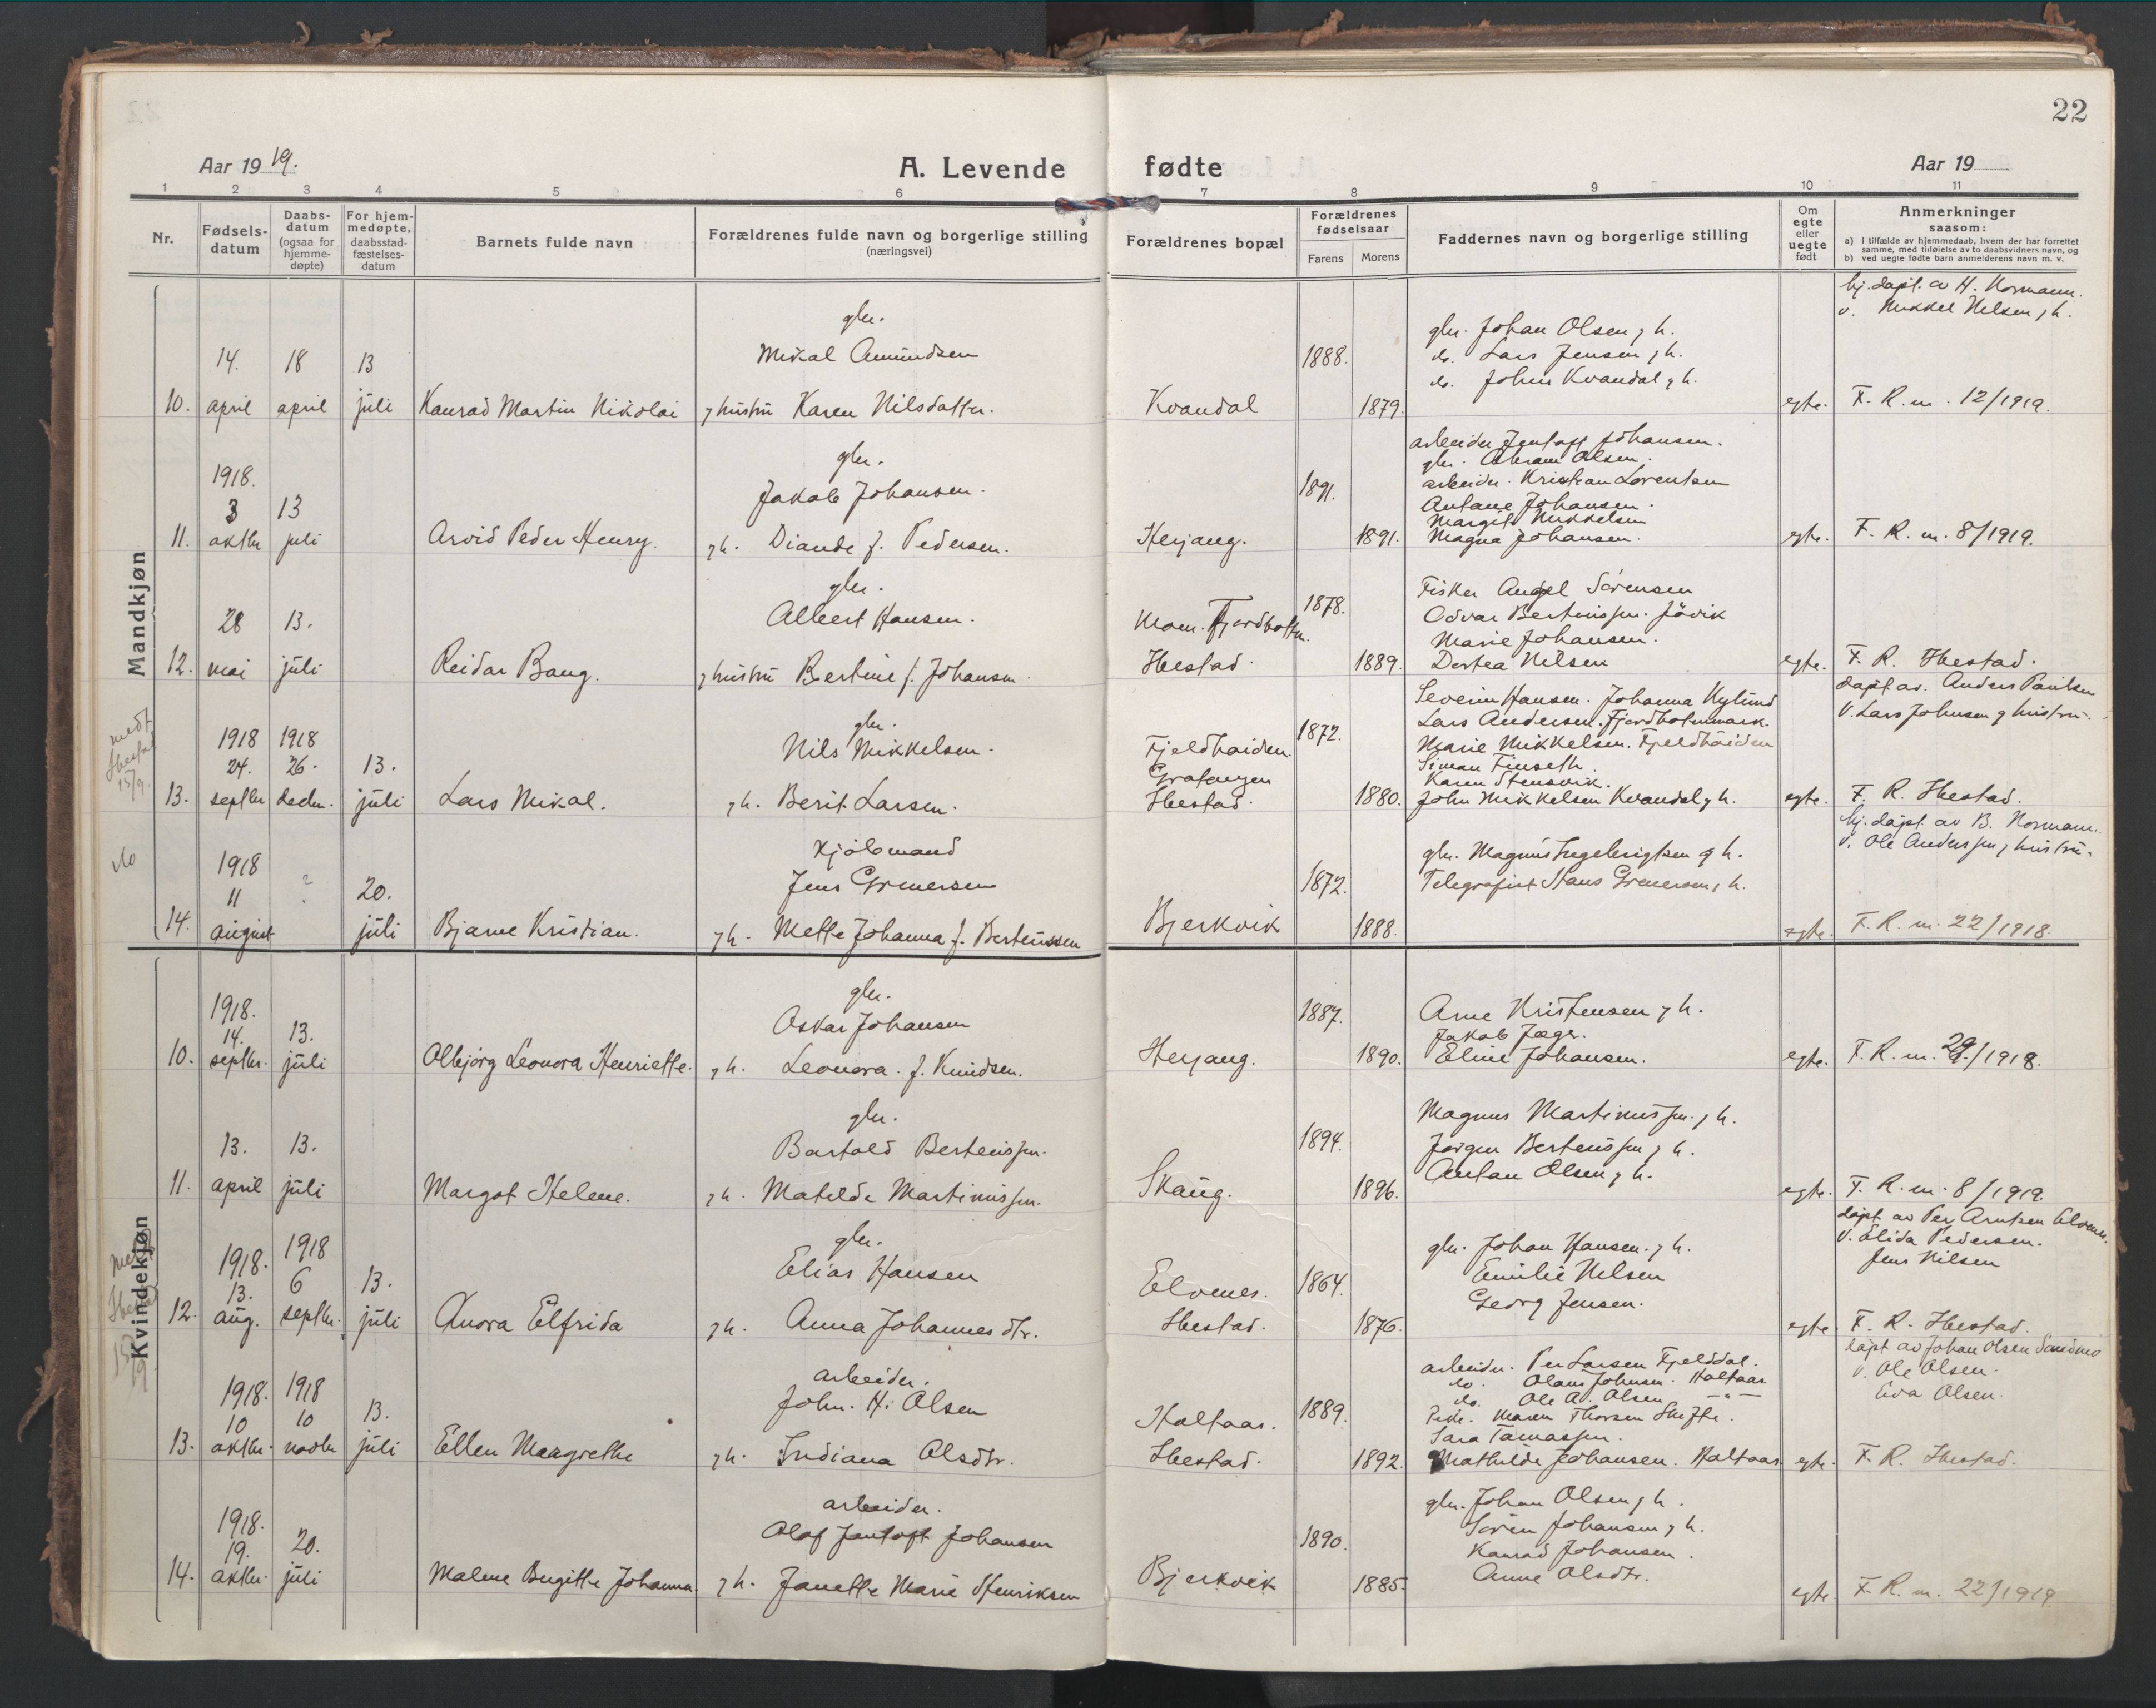 22
Aar 1919.
A. Levende fødte
Aar 19
1 2 3 4 5 6 7 8 9 10 11
Nr.
Fødsels-
datum
Daabs-
datum
(ogsaa for
hjemme-
døpte)
For hjem-
medøpte,
daabsstad-
fæstelses-
datum
Barnets fulde navn
Forældrenes fulde navn og borgerlige stilling
(næringsvei)
Forældrenes bopæl
Forældrenes
fødselsaar
Farens Morens
Faddernes navn og borgerlige stilling
Om
egte
eller
uegte
født
Anmerkninger
saasom:
a) I tilfælde av hjemmedaab, hvem der har forrettet
samme, med tilføielse av to daabsvidners navn, og
b) ved uegte fødte barn anmelderens navn m. v.
Mandkjøn
hj. døpt. av H. Normann.
v. Mikkel Nilsen, h.
gbr.
gbr. Johan Olsen, h.
14. 18 13 Mikal Amundsen 1888. do. Lars Jensen, h.
do. John Kvandal, h.
10. april april juli Konrad Martin Nikolai, hustru Karen Nilsdatter. Kvandal 1879. egte. F. R. m. 12/1919.
arbeider Jentoft Johansen.
gbr. gbr. Abram Olsen.
1918. arbeider. Kristian Lorentsen
Jakob Johansen. 1891.
3 13 Antane Johansen.
Margit Mikkelsen
11. oktbr juli Arvid Peder Henry. h. Diande f. Pedersen. Herjang. 1891. Magna Johansen. egte. F. R. m. 8/1919.
gbr. Fisker Angel Sørensen
28 13. Albert Hansen. Fjordbotten. 1878. Odvar Bertinussen. Jövik
Marie Johansen.
12. mai juli Reidar Bang. hustru Bertine f. Johansen. Ibestad. 1889. Dortea Nilsen egte. F. R. Ibestad.
medt
Ibestad
15/9
døpt av. Anders Paulsen
V. Lars Johnsen, hustru.
Severin Hansen. Johanna Nylund
gbr. Lars Andersen. Fjordbotnmark.
1918 1918 Nils Mikkelsen. Fjeldhøiden 1872. Marie Mikkelsen. Fjeldhøiden
24. 26. 13. Gratangen Simon Finseth.
Karen Stensvik.
13. septbr decbr. juli Lars Mikal. h. Berit Larsen. Ibestad. 1880. John Mikkelsen Kvandal, h. egte. F. R. Ibestad.
hj. døpt. av B. Normann.
V. Ole Andersen, hustru.
do
1918 Kjøbmand gbr. Magnus Ingebrigtsen, h.
11 ? 20. Jens Grenersen 1872. Telegrafist Hans Grenersen, h.
14. august juli Bjarne Kristian. h. Mette Johanna f. Berteussen Bjerkvik 1888. egte. F. R. m. 22/1918.
Kvindekjøn
1918. gbr. 1887. Arne Kristensen, h.
14. 13. Oskar Johansen Jakob Jæger.
10. septbr. juli Olbjörg Leonora Henriette. h. Leonora. f. Knudsen. Herjang. 1890. Eline Johansen. egte. F. R. m. 29/1918.
gbr. Magnus Martinussen, h.
13. 13. Bartold Berteussen. 1894. Jörgen Berteussen, h.
Anton Olsen, h.
11. april juli Margot Helene. h. Matilde Martinussen. Skaug. 1896. egte. F. R. m. 8/1919.
døpt av Per Arntsen Elvenes.
V. Elida Pedersen.
Jens Nilsen
1918. 1918 gbr. gbr. Johan Hansen. h.
13. 6 13. Elias Hansen Elvenes. 1864. Emilie Nilsen
Georg Jensen.
12. aug. septbr. juli Anora Elfrida h. Anna Johannesdtr. Ibestad. 1876. egte. F. R. Ibestad.
døpt av Johan Olsen Sandmo
v. Ole Olsen.
Eva Olsen.
arbeider. Per Larsen Fjelddal.
1918. 1918 arbeider. do. Olaus Johnsen. Haltaar
10 10 13. John. H. Olsen Haltaar. 1889. do. Ole Ad. Olsen —"—
Maren Thorsen
Sara Tomassen.
13. oktbr. novbr juli Ellen Margrethe h. Indiana Olsdtr. Ibestad. 1892. Mathilde Johansen. Haltaar. egte. F. R. Ibestad.
arbeider. gbr. Johan Olsen, h.
1918. Olaf Jentoft Johansen 1890. Sörin Johansen, h.
19. 20. Konrad Johansen.
14. oktbr. juli Malene Birgitte Johanna h. Janette Marie Henriksen Bjerkvik 1885. Anne Olsdtr. egte. F. R. m. 22/1918